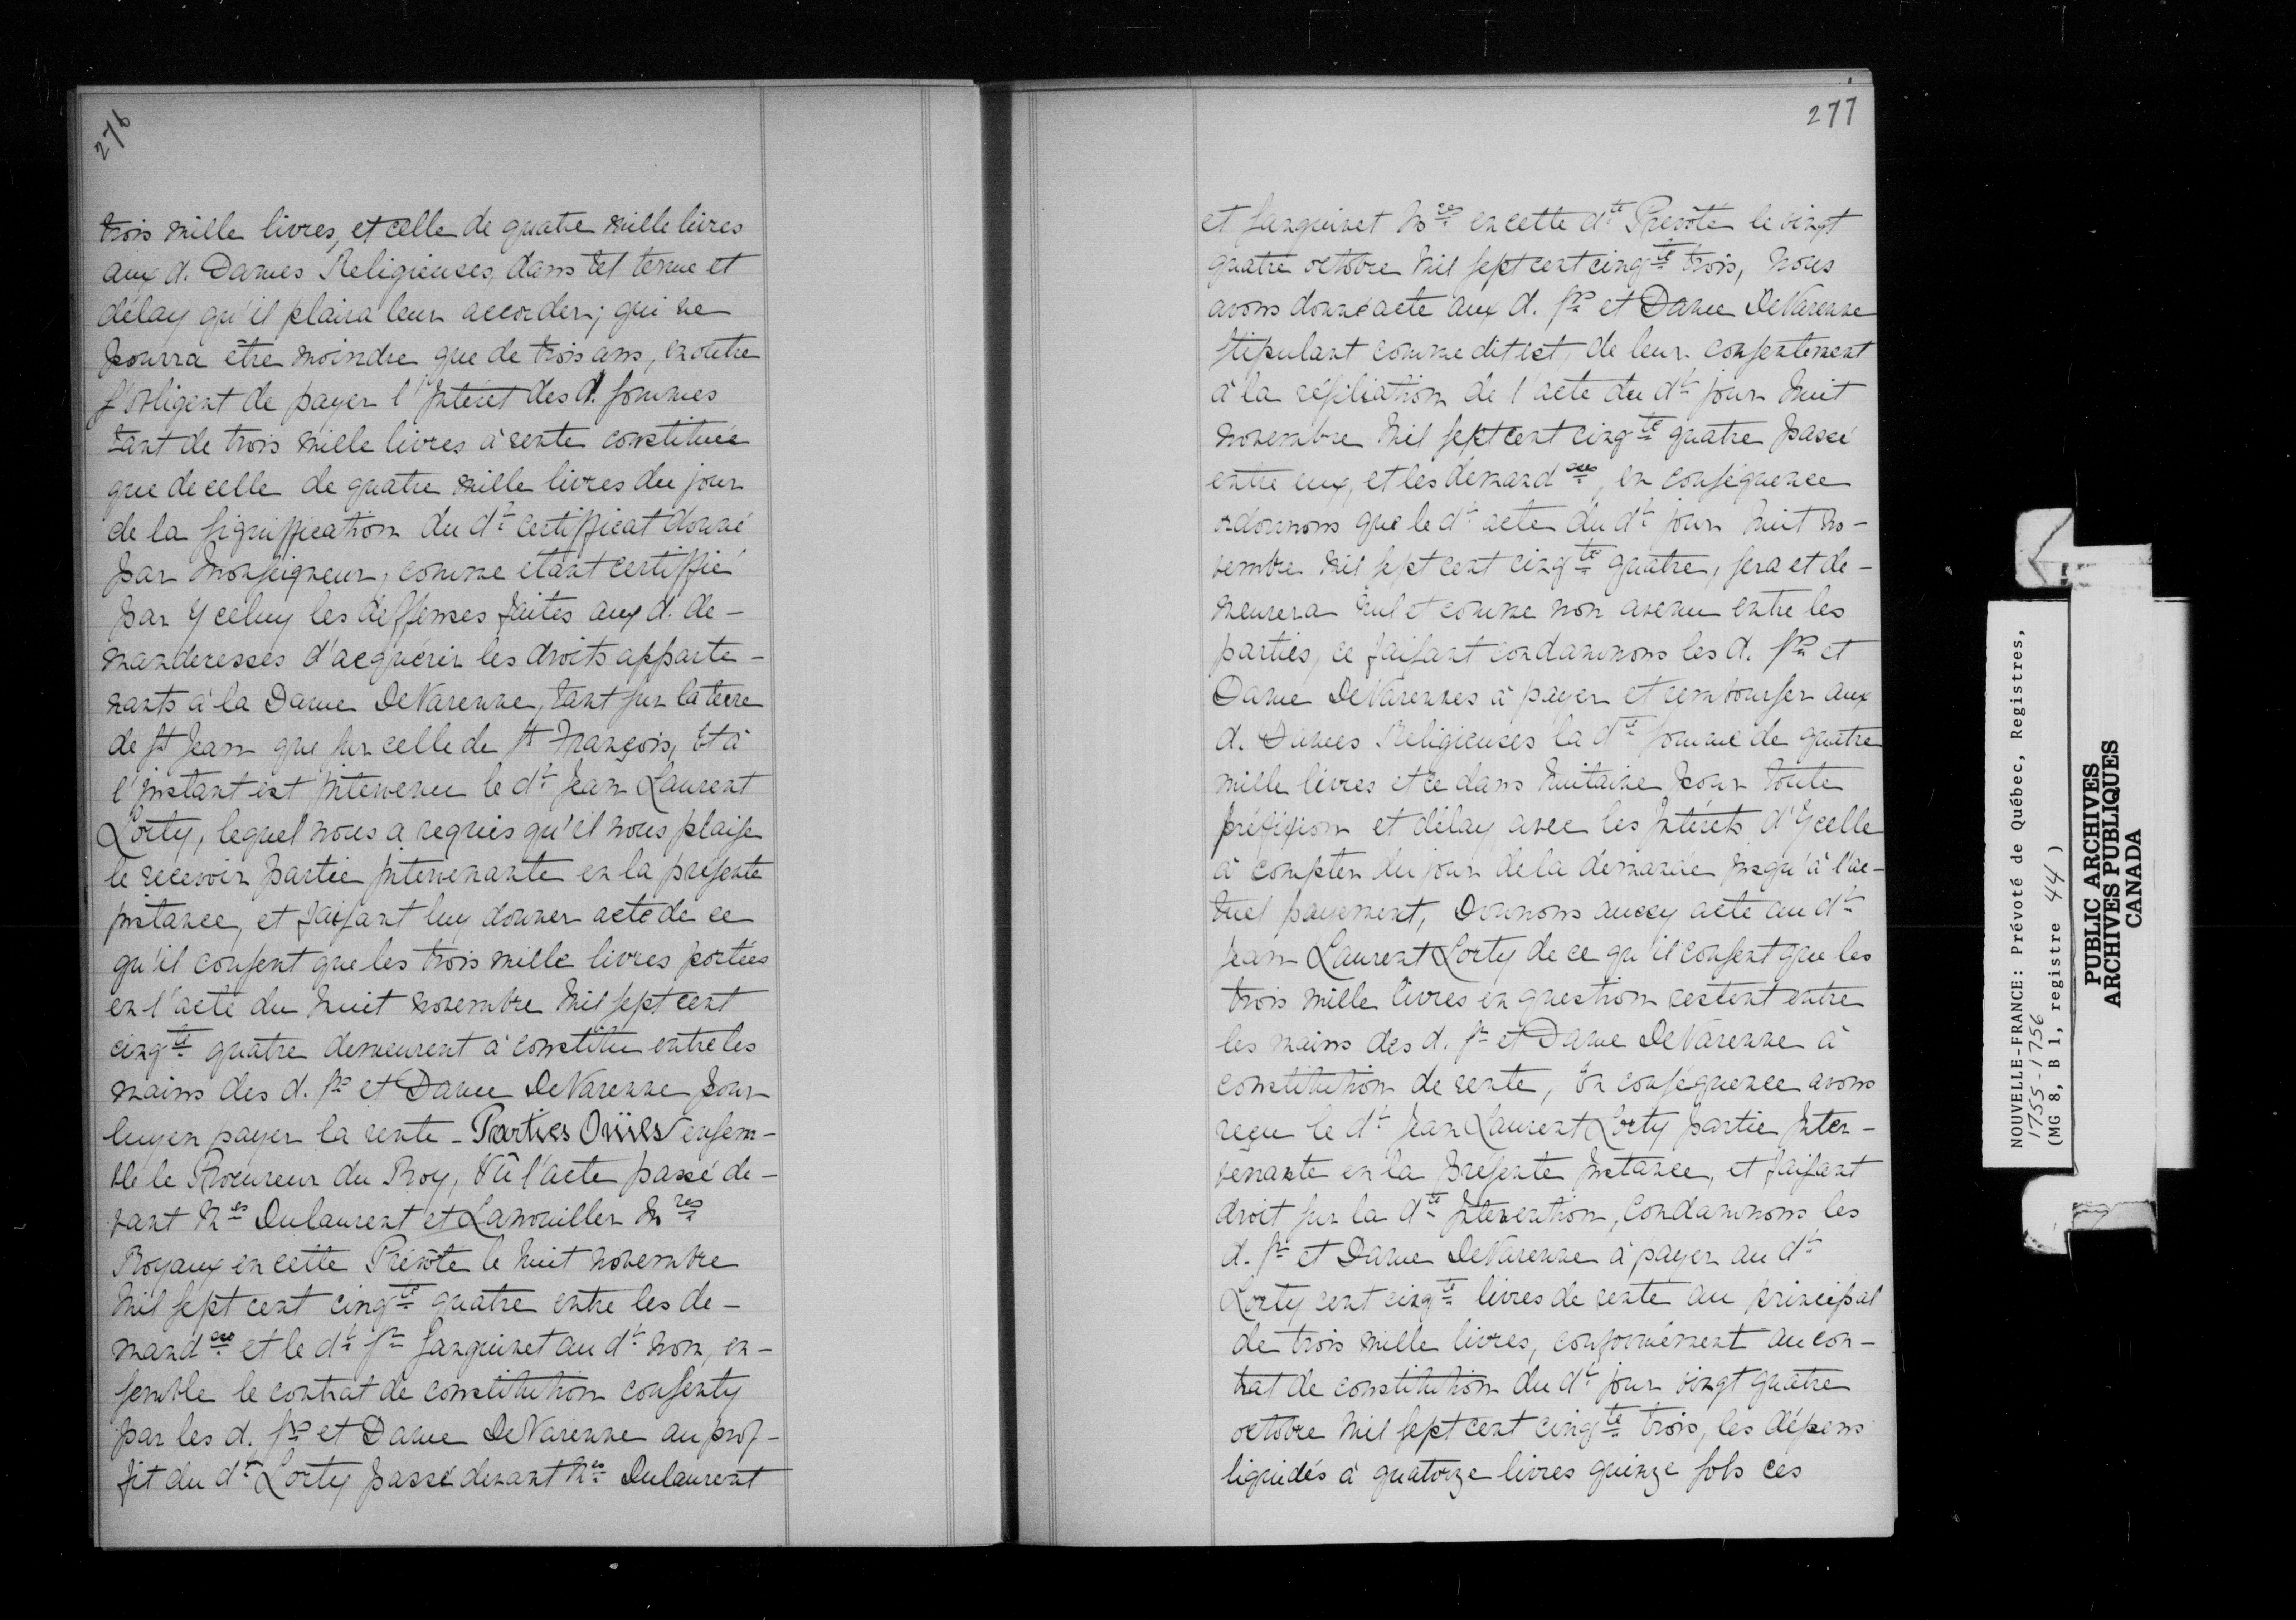 276
trois mille livres, et celle de quatre mille livres
aux d. Dames Religieuses, dans tel terme et
délay qu'il plaira leur accorder; qui ne
pourra être moindre que de trois ans, en outre
s'obligent de payer l'Intéret des d. sommes
tant de trois mille livres à rente constituée
que de celle de quatre mille livres du jour
de la signiffication du dt. certifficat donné
par Monseigneur, comme etant certiffié
par Yceluy les deffenses faites aux d. de-
manderesses d'acquérir les droits apparte-
nants à la Dame DeVarenne, tant sur la terre
de St Jean que sur celle de St François, Et à
l'instant est intervenu le dt. Jean Laurent
Lorty, lequel nous a requis qu'il nous plaise
le recevoir partie intervenante en la presente
instance, et faisant luy donner acte de ce
qu'il consent que les trois mille livres portées
en l'acte du huit novembre mil sept cent
cinqte quatre demeurent à constitu entre les
mains des d. Srs et Dame DeVarenne pour
luy en payer la rente - Parties Oüies ensem-
ble le Procureur du Roy, Vû l'acte passé de-
vant Mes Dulaurent et Lanouiller Nres
Royaux en cette Prévôté le huit novembre
mil sept cent cinqte quatre entre les de-
mandses et le dt. Sr Sanguinet au dt. nom, en-
semble le contrat de constitution consenty
par les d. Srs et Dame DeVarenne au prof-
fit du dt. Lorty passé devant Mes Dulaurent
277
et Sanguinet Nres en cette dte Prevôté le vingt
quatre octobre mil sept cent cinqte trois, Nous
avons donné acte aux d. Srs et Dame DeVarenne
stipulant comme dit est, de leur consentement
à la résiliation de l'acte du dt. jour huit
novembre mil sept cent cinqte quatre passé
entre eux, et les demandses, en conséquence
ordonnons que le dt. acte du dt. jour huit no-
vembre mil sept cent cinqte quatre, sera et de-
meurera nul et comme non avenu entre les
parties, ce faisant condamnons les d. Srs et
Dame DeVarennes à payer et rembourser aux
d. Dames Religieuses la dte somme de quatre
mille livres et ce dans huitaine pour toute
préfixion et délay, avec les Intérets d'Ycelle
à compter du jour de la demande jusqu'à l'ac-
tuel payement, Donnons aussy acte au dt.
Jean Laurent Lorty de ce qu'il consent que les
trois mille livres en question restent entre
les mains des d. Sr et Dame DeVarenne à
constitution de rente, En conséquence avons
reçu le dt. Jean Laurent Lorty partie Inter-
venante en la présente Instance, et faisant
droit sur la dte Intervention, Condamnons les
d. Sr et Dame DeVarenne à payer au dt.
Lorty cent cinqte livres de rente au principal
de trois mille livres, conformément au con-
trat de constitution du dt. jour vingt quatre
octobre mil sept cent cinqte trois, les dépens
liquidés à quatorze livres quinze sols ces
NOUVELLE-FRANCE: Prévoté de Québec, Registres,
1755-1756
(MG 8, B 1, registre 44)
PUBLIC ARCHIVES
ARCHIVES PUBLIQUES
CANADA